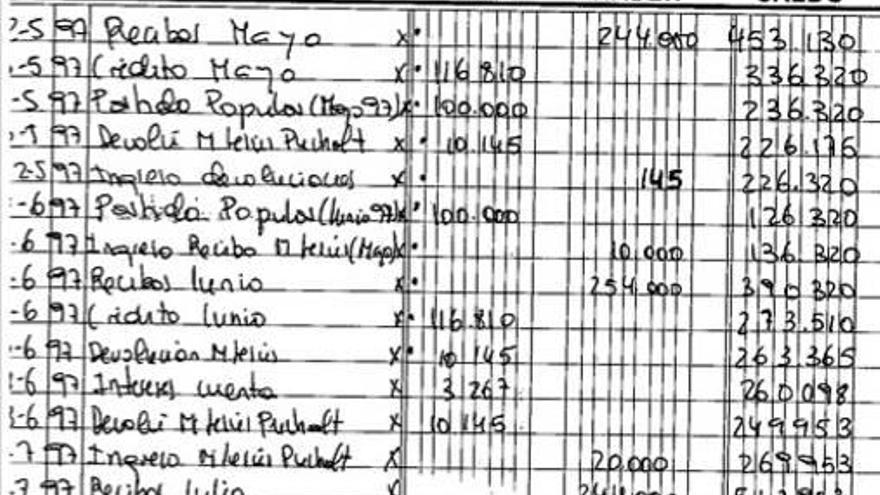 2-5 97 Recibos Mayo x 244.000 453.130
-5 97 Crédito Mayo x 116.810 336.320
-5 97 Partido Popular (Mayo 97) x 100.000 236.320
97 Devolu M Jesús Puchalt x 10.145 226.175
2-5 97 Ingreso devoluciones x 145 226.320
-6 97 Partido Popular (Junio 97) x 100.000 126.320
-6 97 Ingreso Recibo M Jesús (Mayo) x 10.000 136.320
-6 97 Recibos Junio x 254.000 390.320
-6 97 Crédito Junio x 116.810 273.510
-6 97 Devolución M Jesús x 10.145 263.365
-6 97 Intereses cuenta x 3.267 260.098
-6 97 Devolu M Jesús Puchalt x 10.145 249.953
-7 97 Ingreso M Jesús Puchalt x 20.000 269.953
-7 97 Recibos Julio x